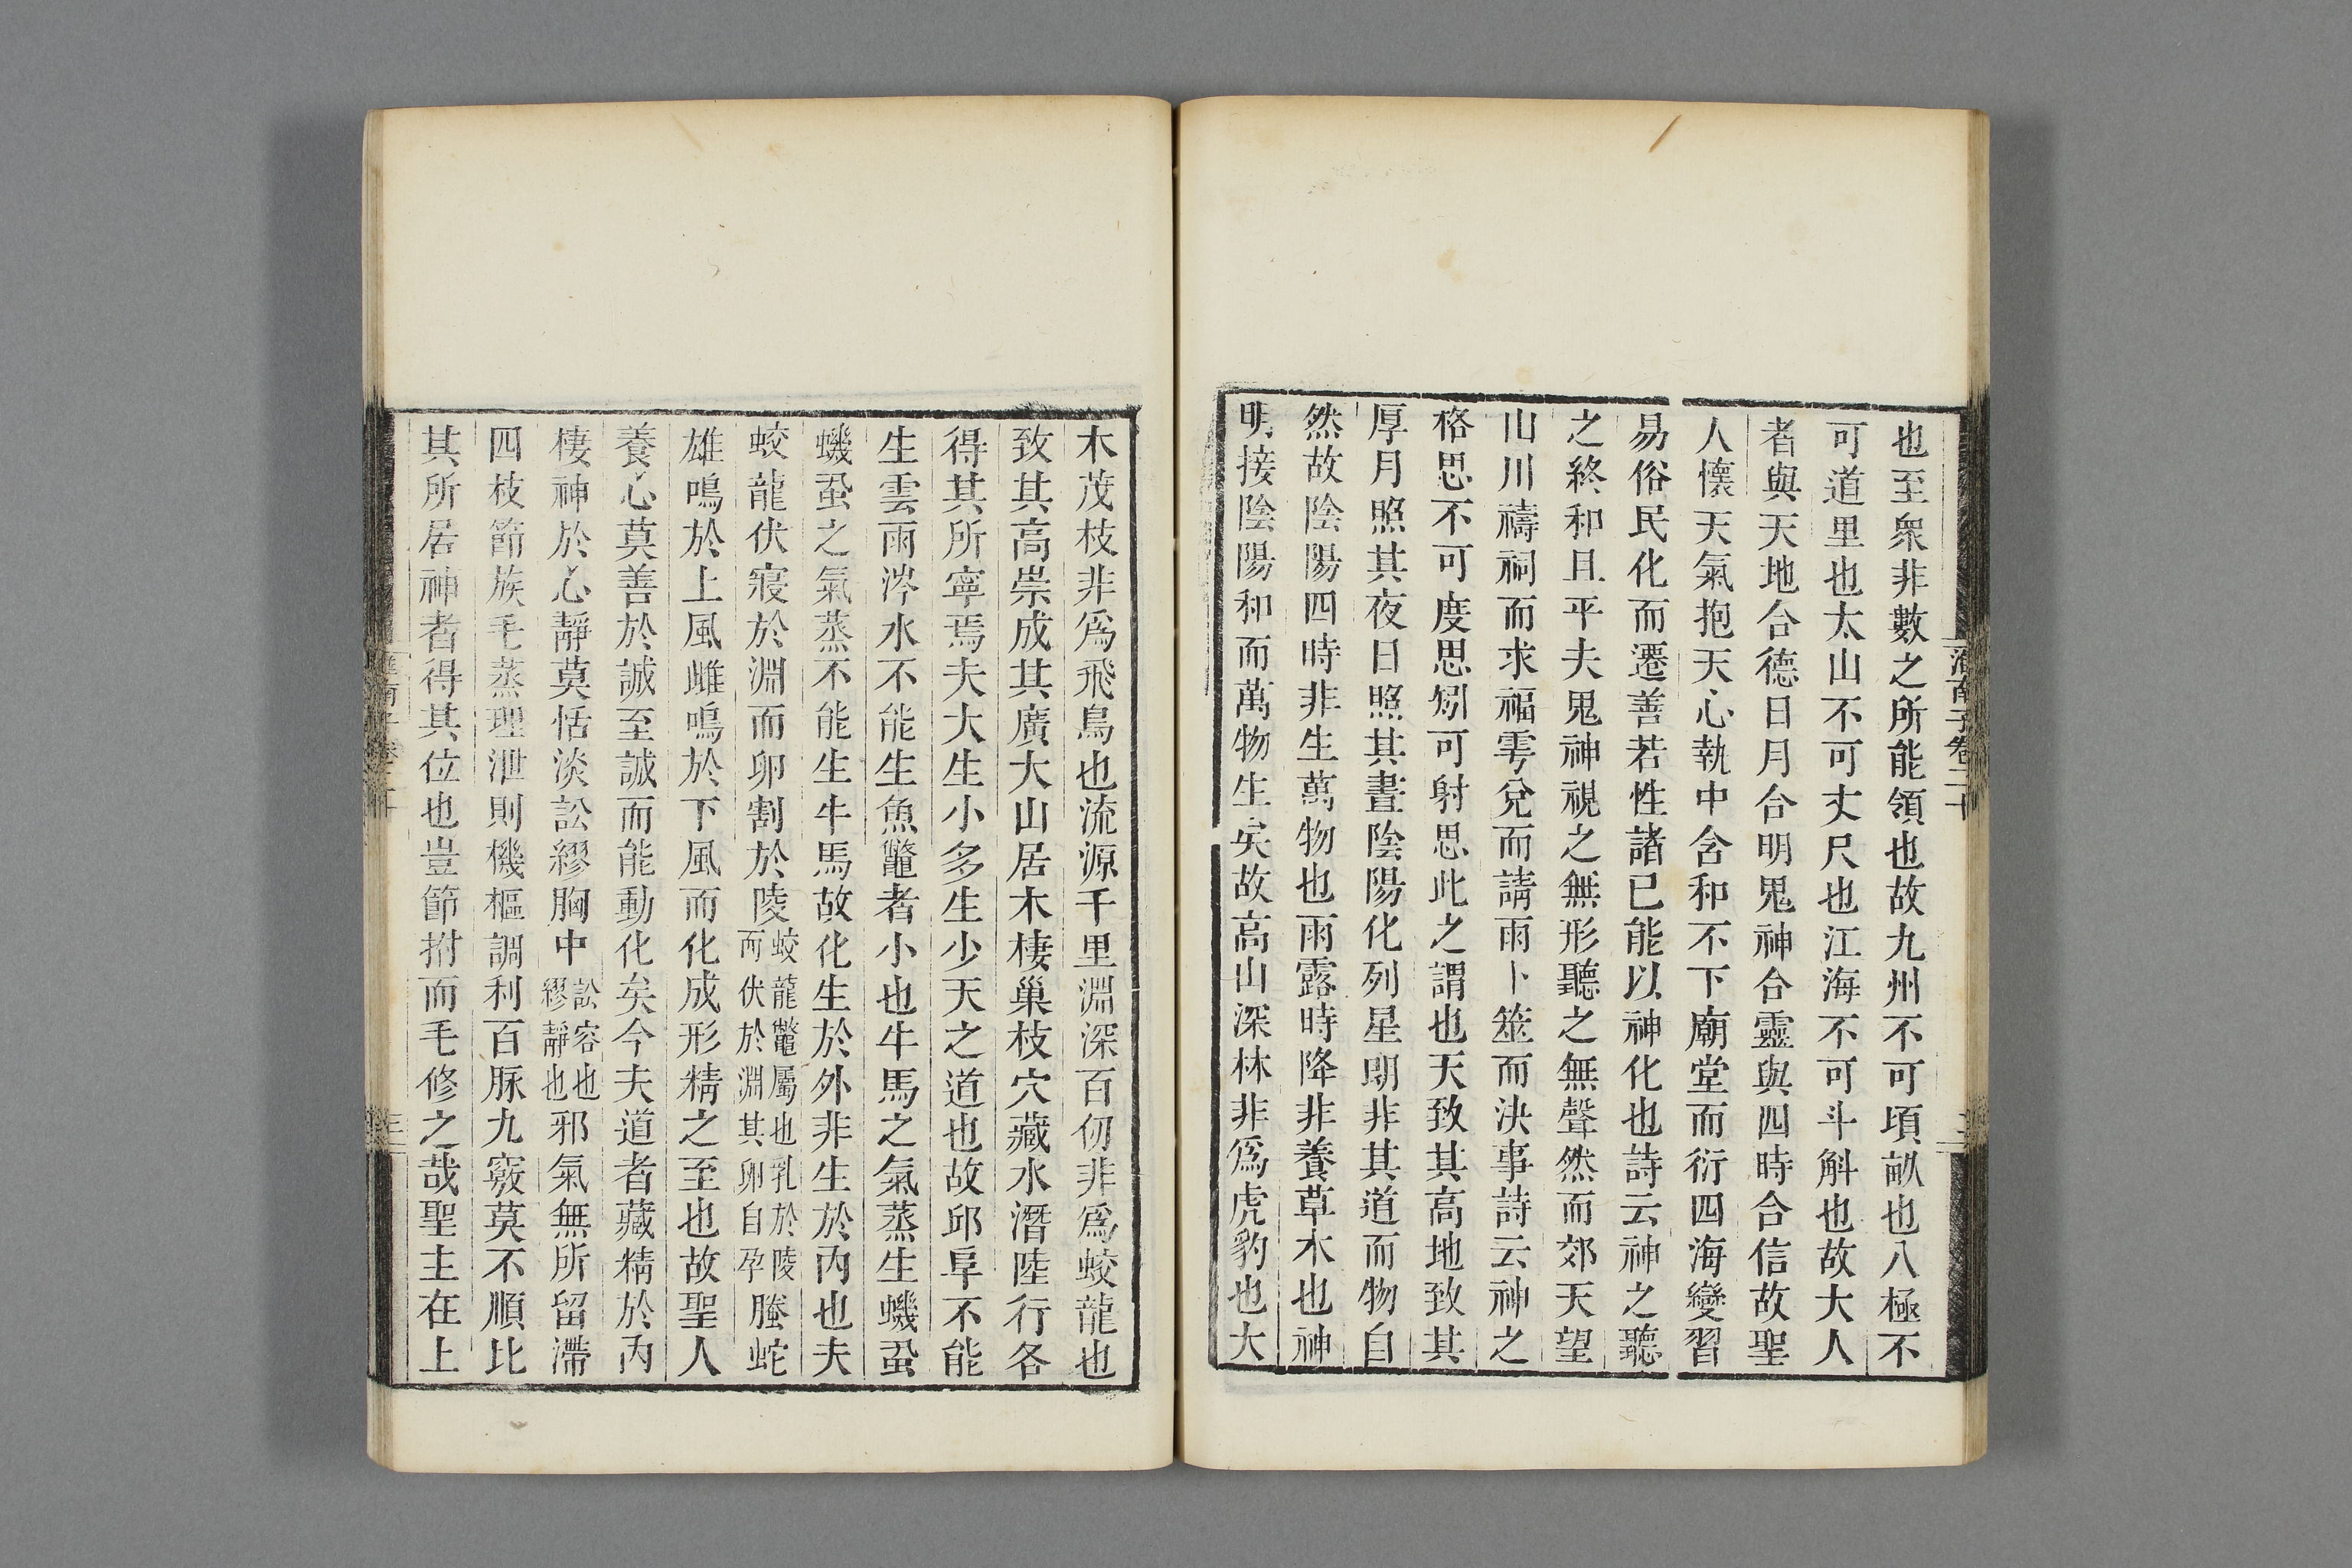 淮南子卷二十
也至衆非數之所能領也故九州不可頃畝也八極不
可道里也太山不可丈尺也江海不可斗斛也故大人
者與天地合德日月合明鬼神合靈與四時合信故聖
人懷天氣抱天心執中含和不下廟堂而衍四海變習
易俗民化而遷善若性諸已能以神化也詩云神之聽
之終和且平夫鬼神視之無形聽之無聲然而郊天望
山川禱祠而求福雩兌而請雨卜筮而決事詩云神之
格思不可度思矧可射思此之謂也天致其高地致其
厚月照其夜日照其晝陰陽化列星朗非其道而物自
然故陰陽四時非生萬物也雨露時降非養草木也神
明接陰陽和而萬物生矣故高山深林非爲虎豹也大
木茂枝非爲飛鳥也流源千里淵深百仞非爲蛟龍也
致其高崇成其廣大山居木棲巢枝穴藏水潛陸行各
得其所寧焉夫大生小多生少天之道也故邱阜不能
生雲雨涔水不能生魚鼈者小也牛馬之氣蒸生蟣蝨
蟣蝨之氣蒸不能生牛馬故化生於外非生於內也夫
蛟龍伏寢於淵而卵割於陵蛟龍鼈屬也乳於陵而伏於淵其卵自孕騰蛇
雄鳴於上風雌鳴於下風而化成形精之至也故聖人
養心莫善於誠至誠而能動化矣今夫道者藏精於內
棲神於心靜莫恬淡訟繆胸中訟容也繆靜也邪氣無所留滯
四枝節族毛蒸理泄則機樞調利百脈九竅莫不順比
其所居神者得其位也豈節拊而毛修之哉聖主在上
淮南子卷二十
三